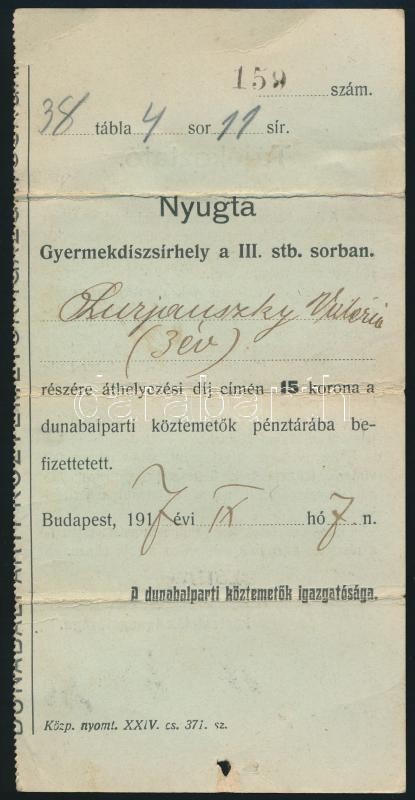 159 szám.
38 tábla 4 sor 11 sír.
Nyugta
Gyermekdiszsírhely a III. stb. sorban.
Lurjanszky Viktória
(3 év)
részére áthelyezési dij címén 15 korona a
dunabalparti köztemetők pénztárába be-
fizettetett.
Budapest, 1917 évi IX hó 7. n.
A dunabalparti köztemetők igazgatósága.
Közp. nyomt. XXIV. cs. 371. sz.
darabanth